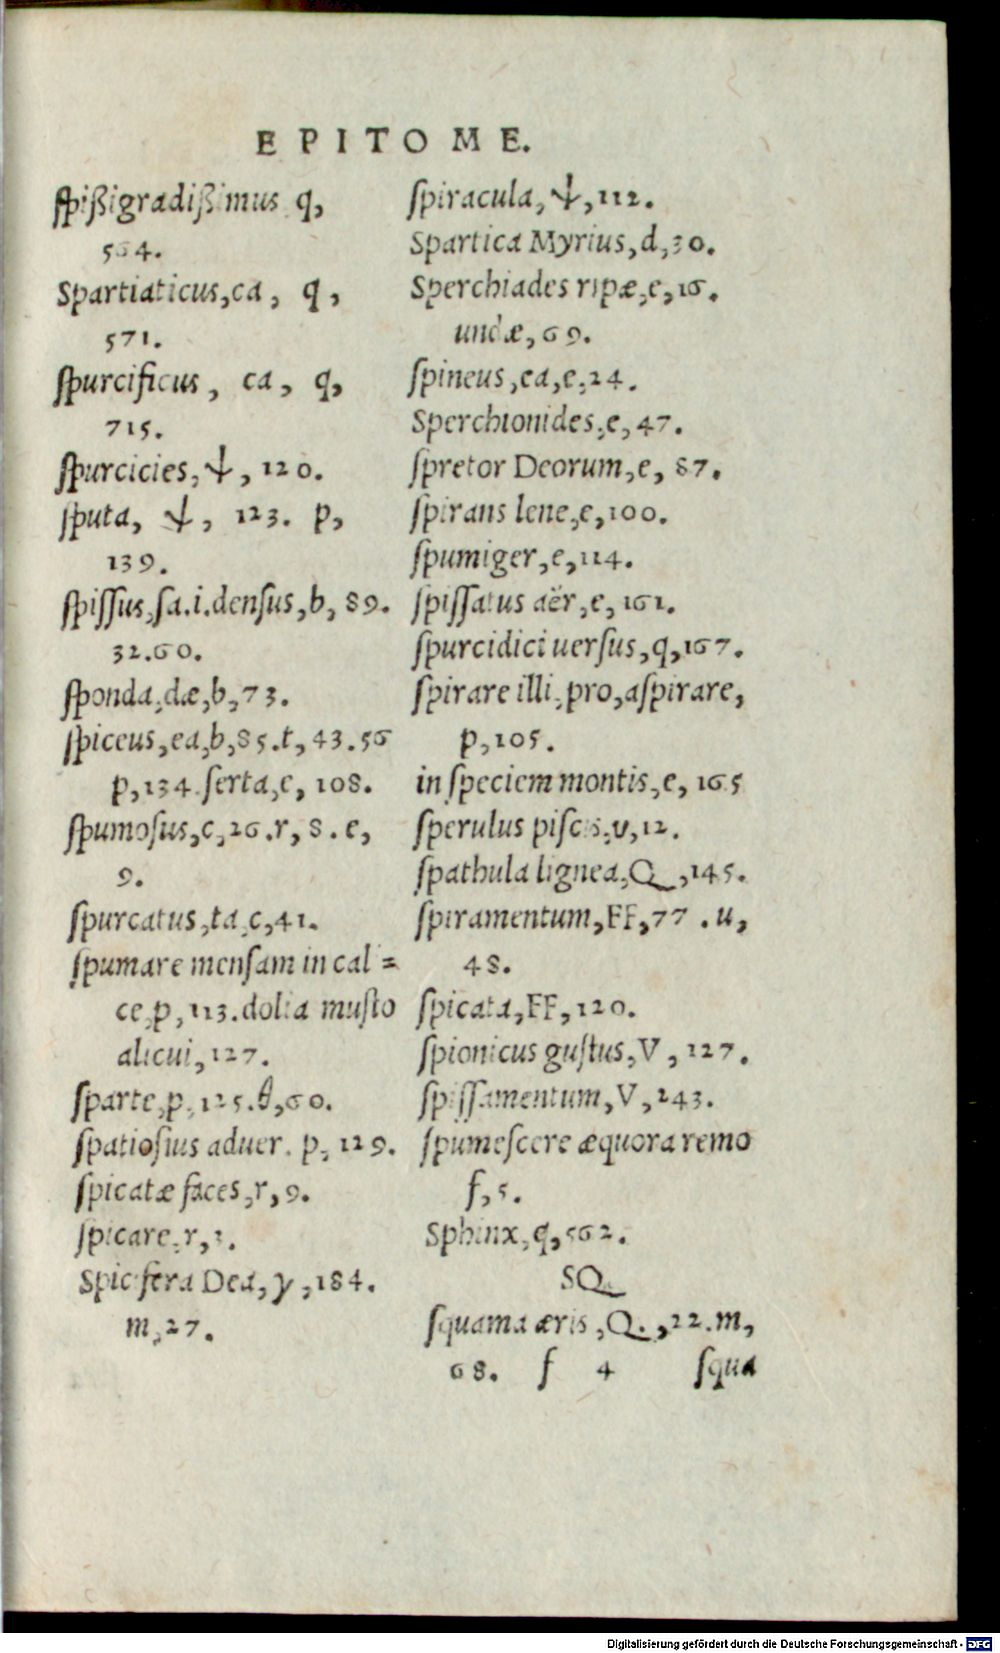 EPITOME.
ſpißigradißimus q,
564.
Spartiaticus,ca, q,
571.
ſpurcificus, ca, q,
715.
ſpurcicies, ψ, 120.
ſputa, ψ, 123. p,
139.
ſpiſſus,ſa.i.denſus,b, 89.
32.60.
ſponda,dæ,b,73.
ſpiceus,ea,b,85.t,43.56
p,134.ſerta,e, 108.
ſpumoſus,c,26.r, 8. e,
9.
ſpurcatus,ta,c,41.
ſpumare menſam in cal=
ce,p,113.dolia muſto
alicui,127.
ſparte,p,125.θ,60.
ſpatioſius aduer. p, 129.
ſpicatæ faces,r,9.
ſpicare,r,3.
Spicifera Dea, γ,184.
m,27.
ſpiracula, ψ,112.
Spartica Myrius,d,30.
Sperchiades ripæ,e,16.
undæ,69.
ſpineus,ea,e,24.
Sperchionides,e,47.
ſpretor Deorum,e, 87.
ſpirans lene,e,100.
ſpumiger,e,114.
ſpiſſatus aër,e,161.
ſpurcidici uerſus,q,167.
ſpirare illi,pro,aſpirare,
p,105.
in ſpeciem montis,e, 165
ſperulus piſcis,υ,12.
ſpathula lignea,Q,145.
ſpiramentum,FF,77.u,
48.
ſpicata,FF,120.
ſpionicus guſtus,V,127.
ſpiſſamentum,V,243.
ſpumeſcere æquora remo
ſ,5.
Sphinx,q,562.
SQ
ſquama æris,Q.,22.m,
68. ſ 4 ſqua
Digitalisierung gefördert durch die Deutsche Forschungsgemeinschaft - DFG